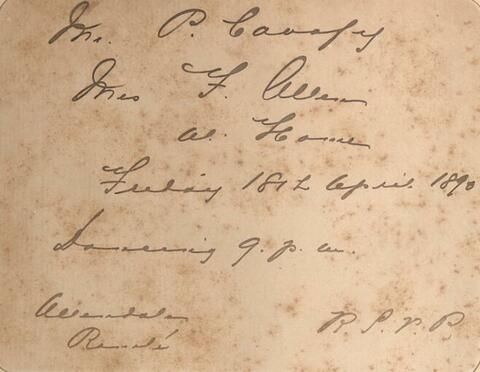 Mr. P. Cavafy
Mrs F. Allen
At Home
Friday 18th April 1890
Dancing 9. p. m.
Allendale
Ramlé
R. S. V. P.